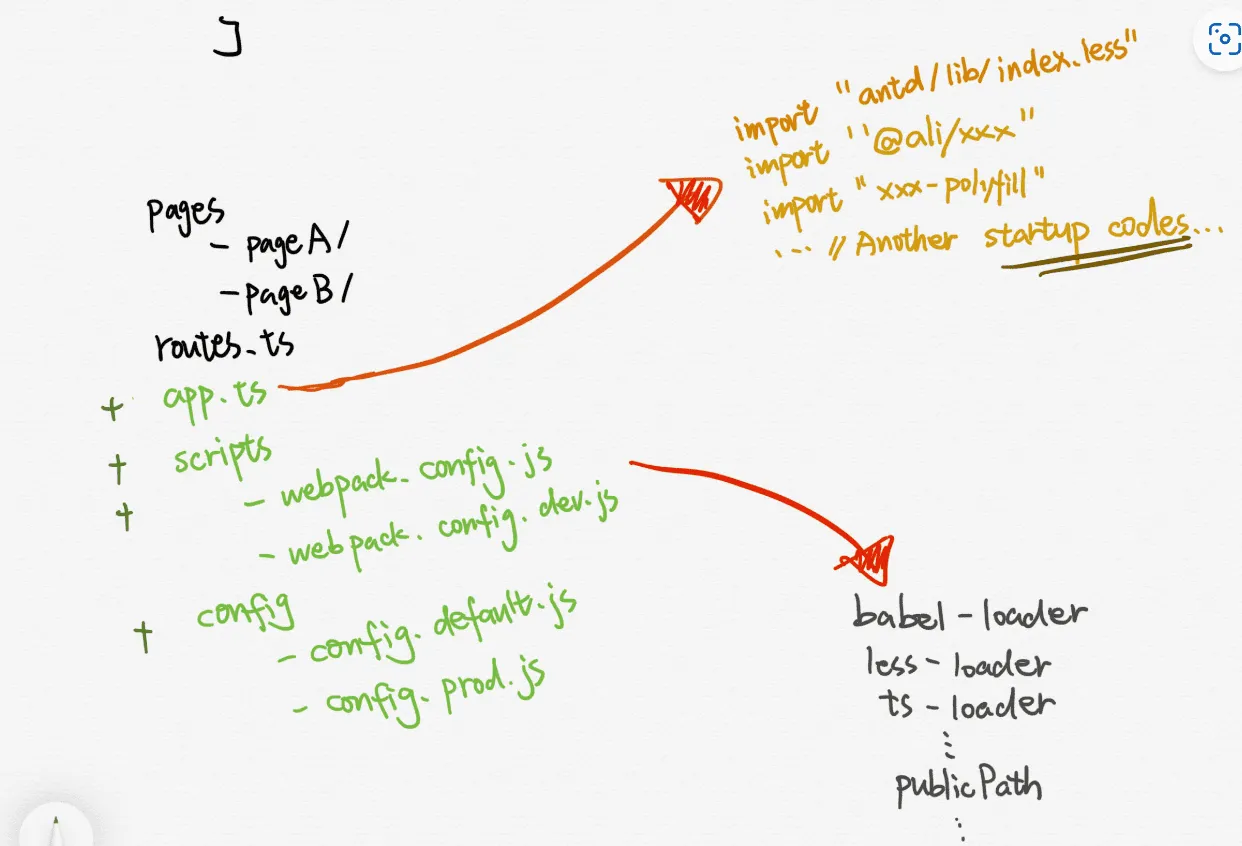 ]
import "antd/lib/index.less"
import "@ali/xxx"
import "xxx-polyfill"
... // Another startup codes...
pages
- pageA/
- pageB/
routes.ts
+ app.ts
+ scripts
+ - webpack.config.js
- webpack.config.dev.js
+ config
- config.default.js
- config.prod.js
babel-loader
less-loader
ts-loader
...
publicPath
...